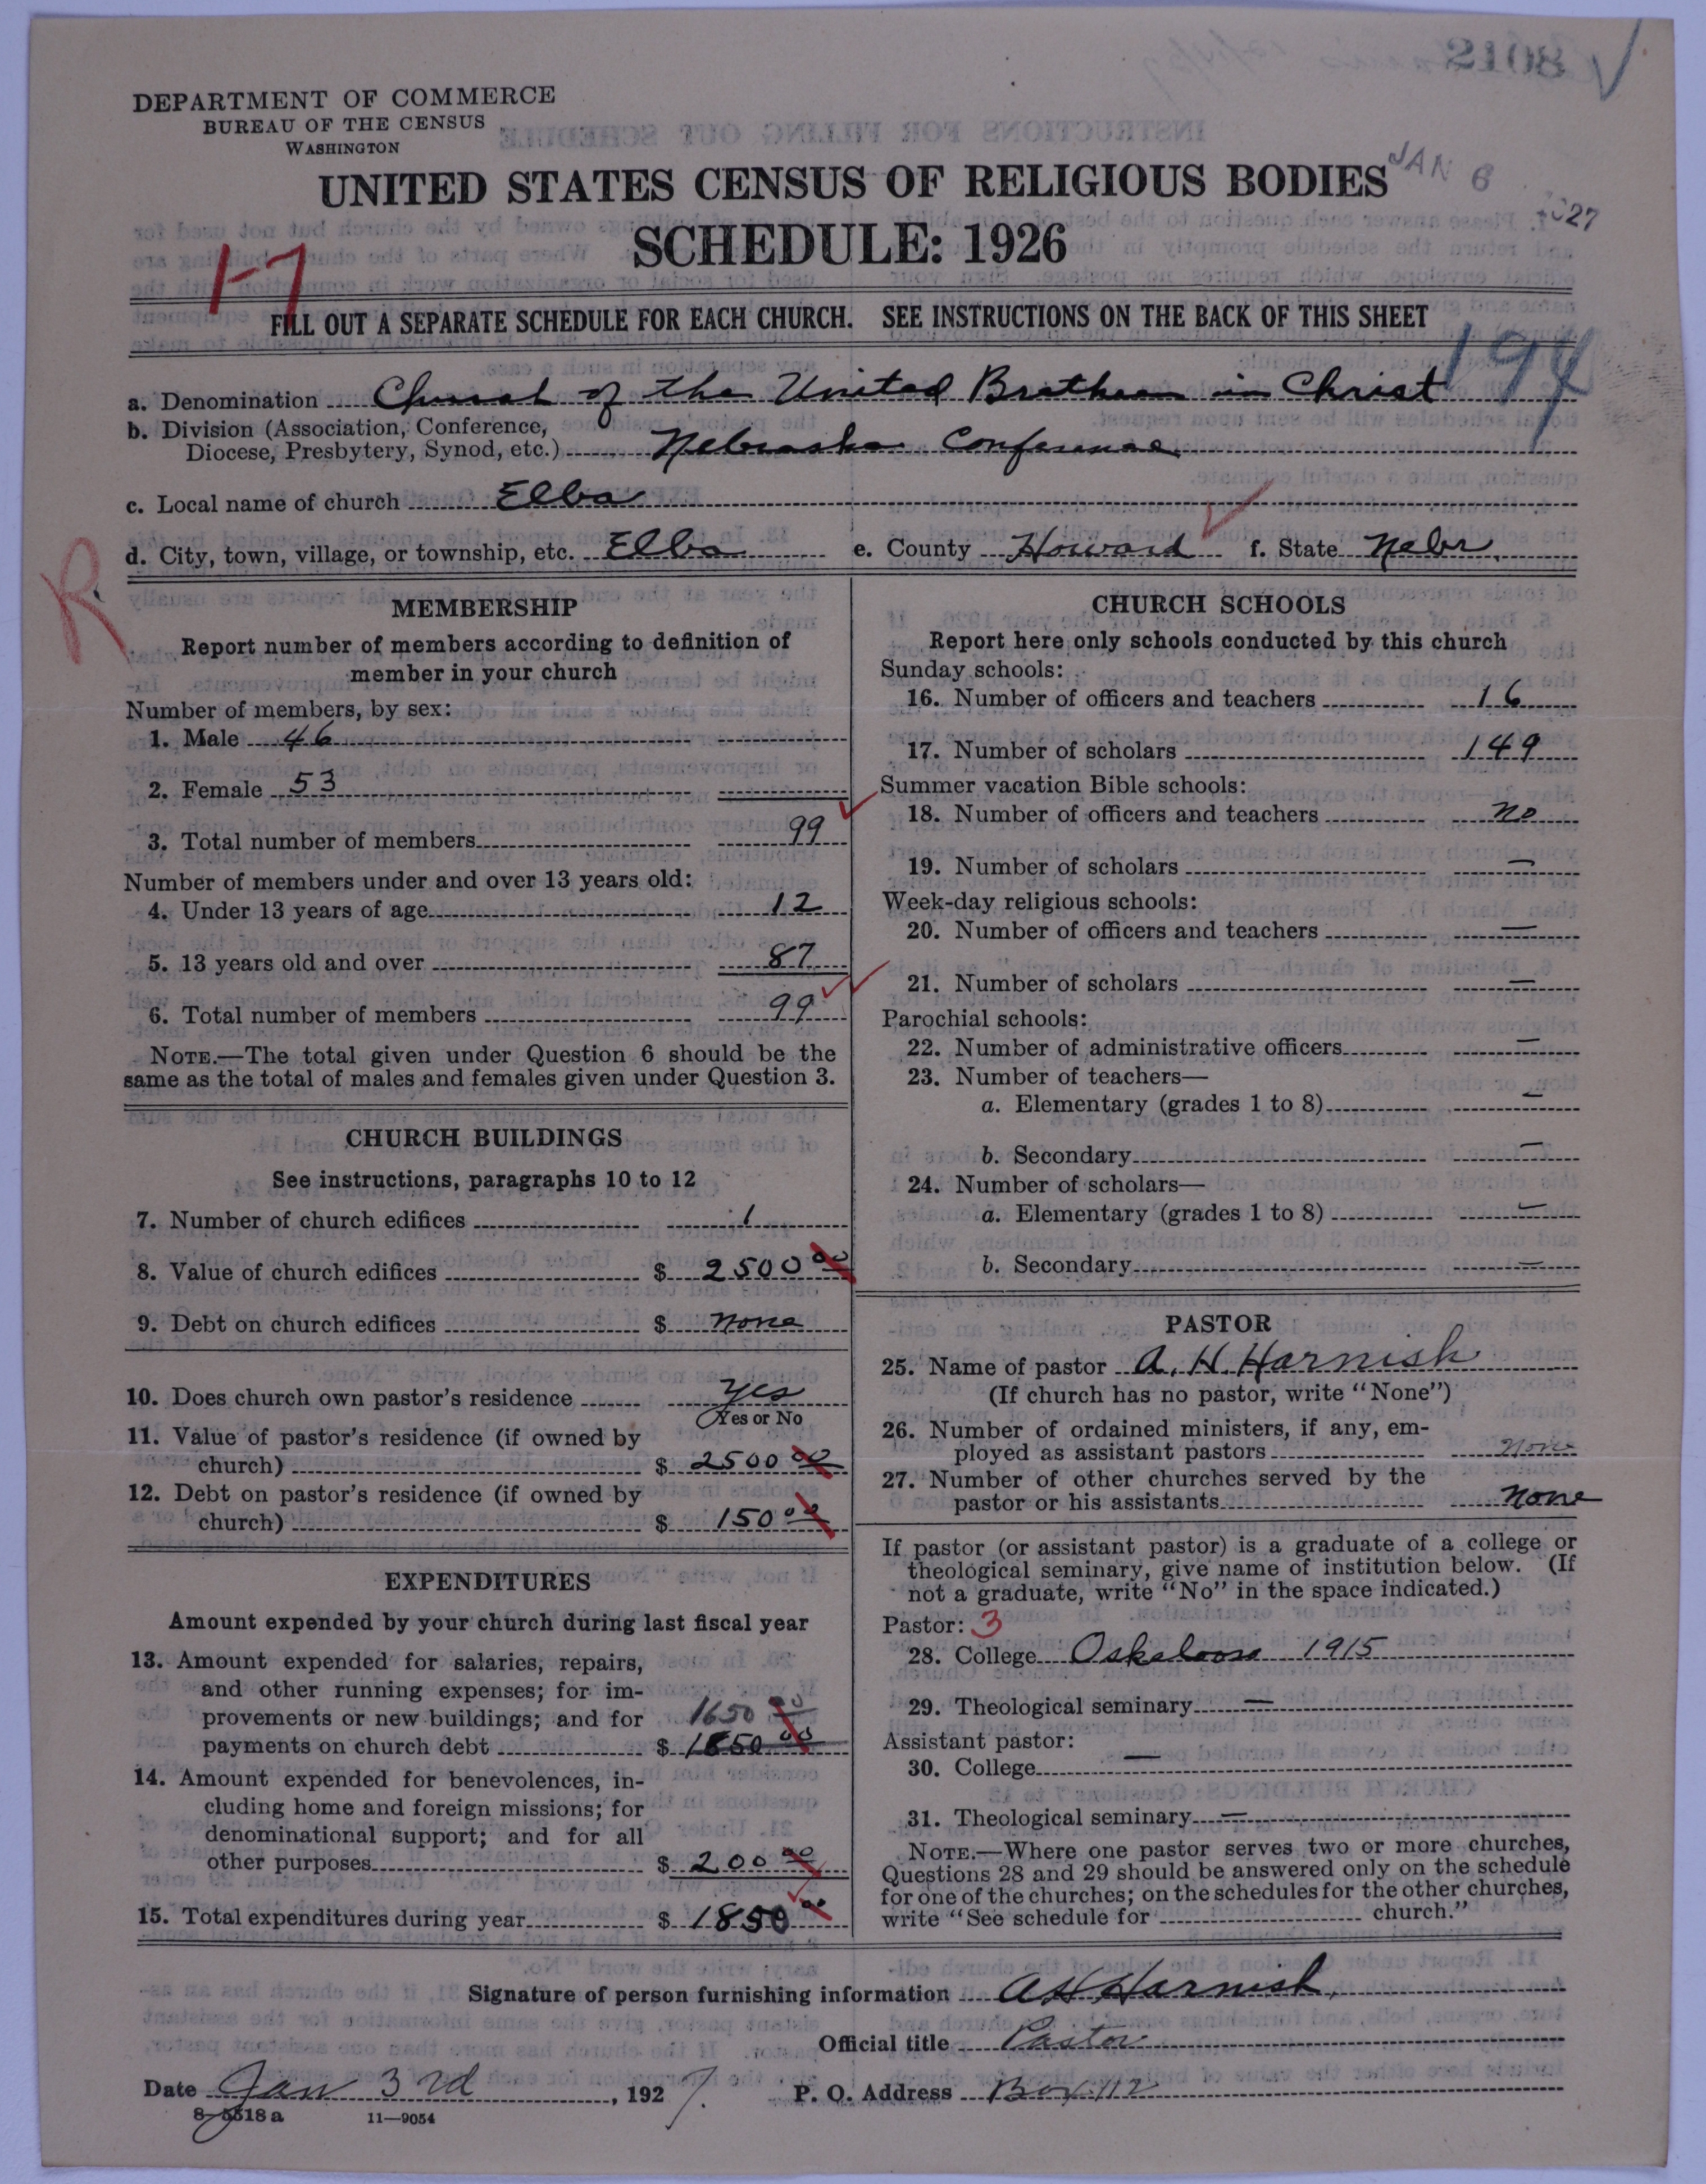 2108
DEPARTMENT OF COMMERCE
BUREAU OF THE CENSUS
WASHINGTON
UNITED STATES CENSUS OF RELIGIOUS BODIES
JAN 6 1927
SCHEDULE: 1926
FILL OUT A SEPARATE SCHEDULE FOR EACH CHURCH. SEE INSTRUCTIONS ON THE BACK OF THIS SHEET
194
a. Denomination Church of the United Brethren in Christ
b. Division (Association, Conference, Diocese, Presbytery, Synod, etc.) Nebraska Conference
c. Local name of church Elba
d. City, town, village, or township, etc. Elba e. County Howard f. State Nebr.
R
MEMBERSHIP
Report number of members according to definition of
member in your church
Number of members, by sex:
1. Male 46
2. Female 53
3. Total number of members 99
Number of members under and over 13 years old:
4. Under 13 years of age 12
5. 13 years old and over 87
6. Total number of members 99
NOTE.—The total given under Question 6 should be the
same as the total of males and females given under Question 3.
CHURCH BUILDINGS
See instructions, paragraphs 10 to 12
7. Number of church edifices 1
8. Value of church edifices $ 2500 00
9. Debt on church edifices $ None
10. Does church own pastor's residence yes
Yes or No
11. Value of pastor's residence (if owned by
church) $ 2500 00
12. Debt on pastor's residence (if owned by
church) $ 150 00
EXPENDITURES
Amount expended by your church during last fiscal year
13. Amount expended for salaries, repairs,
and other running expenses; for im-
provements or new buildings; and for 1650 00
payments on church debt $ 1850 00
14. Amount expended for benevolences, in-
cluding home and foreign missions; for
denominational support; and for all
other purposes $ 200 00
15. Total expenditures during year $ 1850 00
CHURCH SCHOOLS
Report here only schools conducted by this church
Sunday schools:
16. Number of officers and teachers 16
17. Number of scholars 149
Summer vacation Bible schools:
18. Number of officers and teachers no
19. Number of scholars —
Week-day religious schools:
20. Number of officers and teachers —
21. Number of scholars —
Parochial schools:
22. Number of administrative officers —
23. Number of teachers—
a. Elementary (grades 1 to 8) —
b. Secondary —
24. Number of scholars—
a. Elementary (grades 1 to 8) —
b. Secondary —
PASTOR
25. Name of pastor A. H. Harnish
(If church has no pastor, write "None")
26. Number of ordained ministers, if any, em-
ployed as assistant pastors none
27. Number of other churches served by the
pastor or his assistants None
If pastor (or assistant pastor) is a graduate of a college or
theological seminary, give name of institution below. (If
not a graduate, write "No" in the space indicated.)
Pastor: 3
28. College Oskaloosa 1915
29. Theological seminary —
Assistant pastor:
30. College —
31. Theological seminary —
NOTE.—Where one pastor serves two or more churches,
Questions 28 and 29 should be answered only on the schedule
for one of the churches; on the schedules for the other churches,
write "See schedule for church."
Signature of person furnishing information A H Harnish
Official title Pastor
Date Jan 3rd, 1927. P. O. Address Box 112
8-5518 a 11—9054